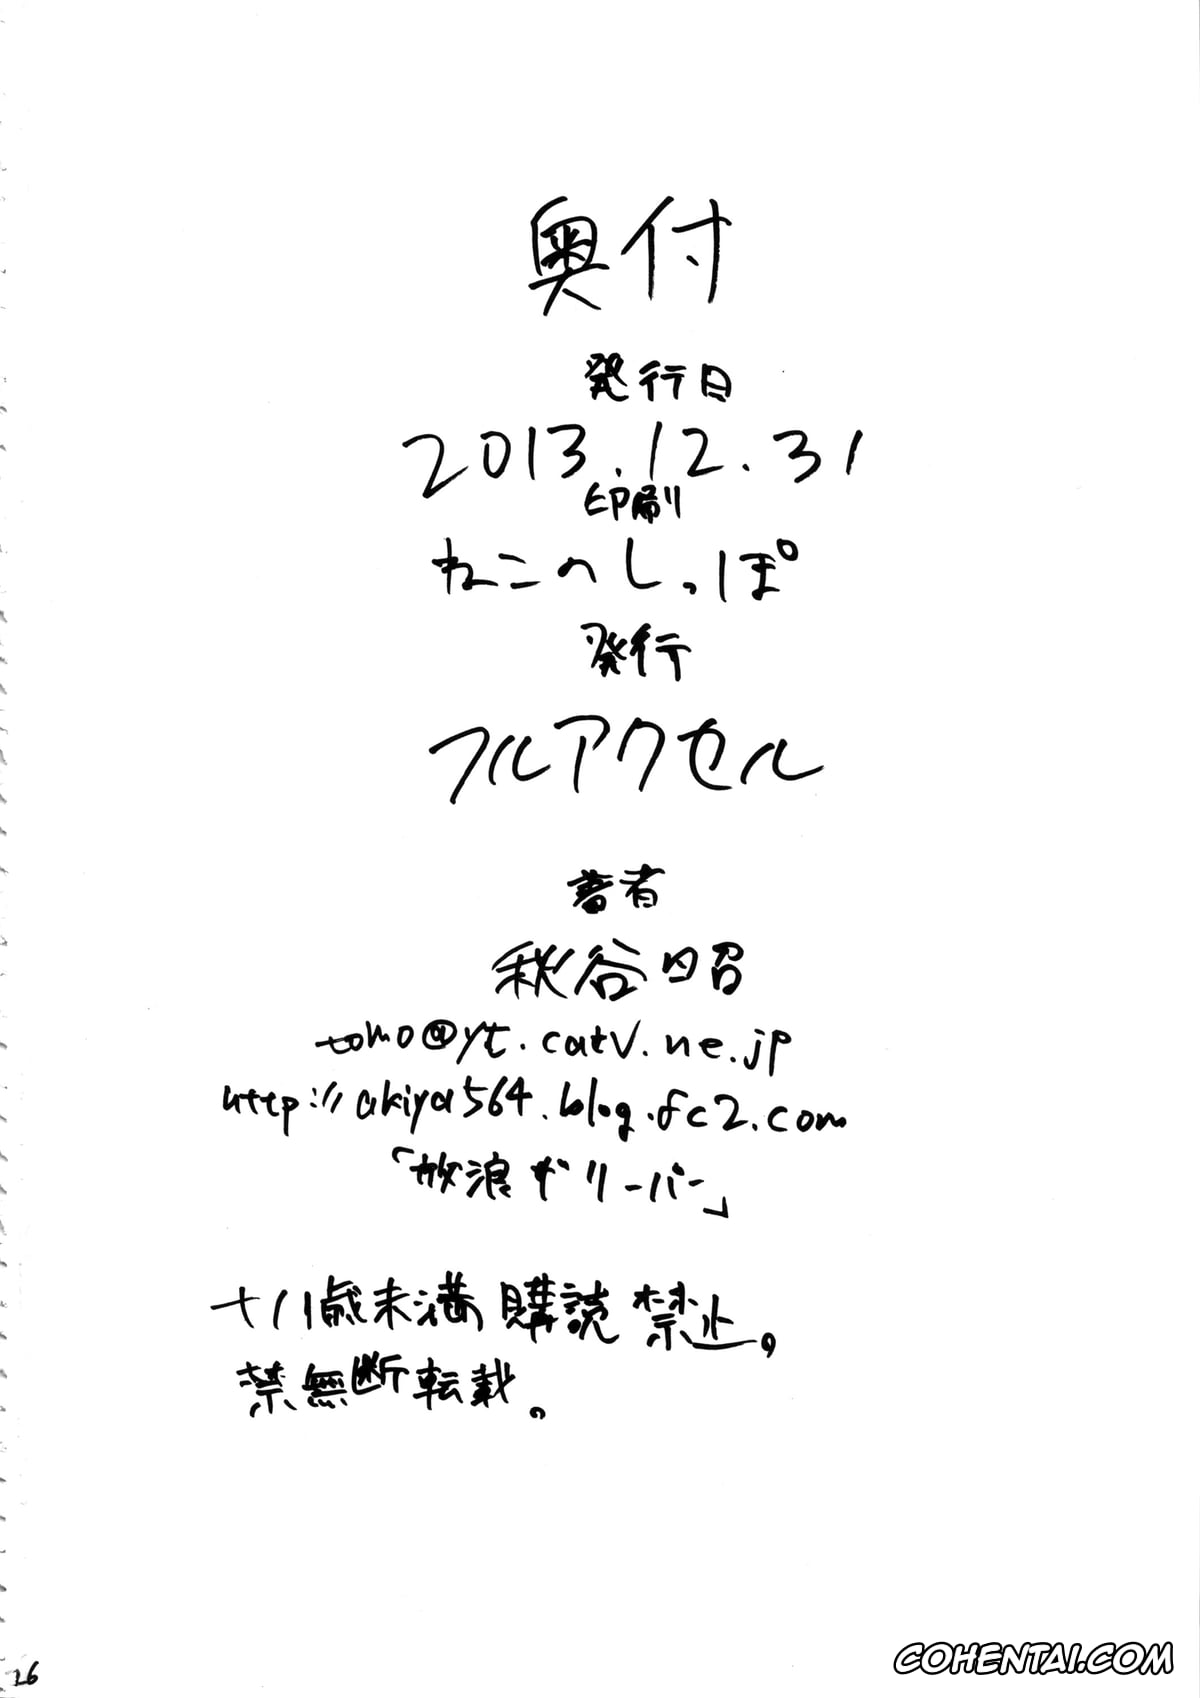 奥付
発行日
2013.12.31
印刷
ねこのしっぽ
発行
フルアクセル
著者
秋谷昭
tomo@yt.catv.ne.jp
http://akiya564.blog.fc2.com
「放浪ガリーバー」
十八歳未満購読禁止。
禁無断転載。
26
COHENTAI.COM